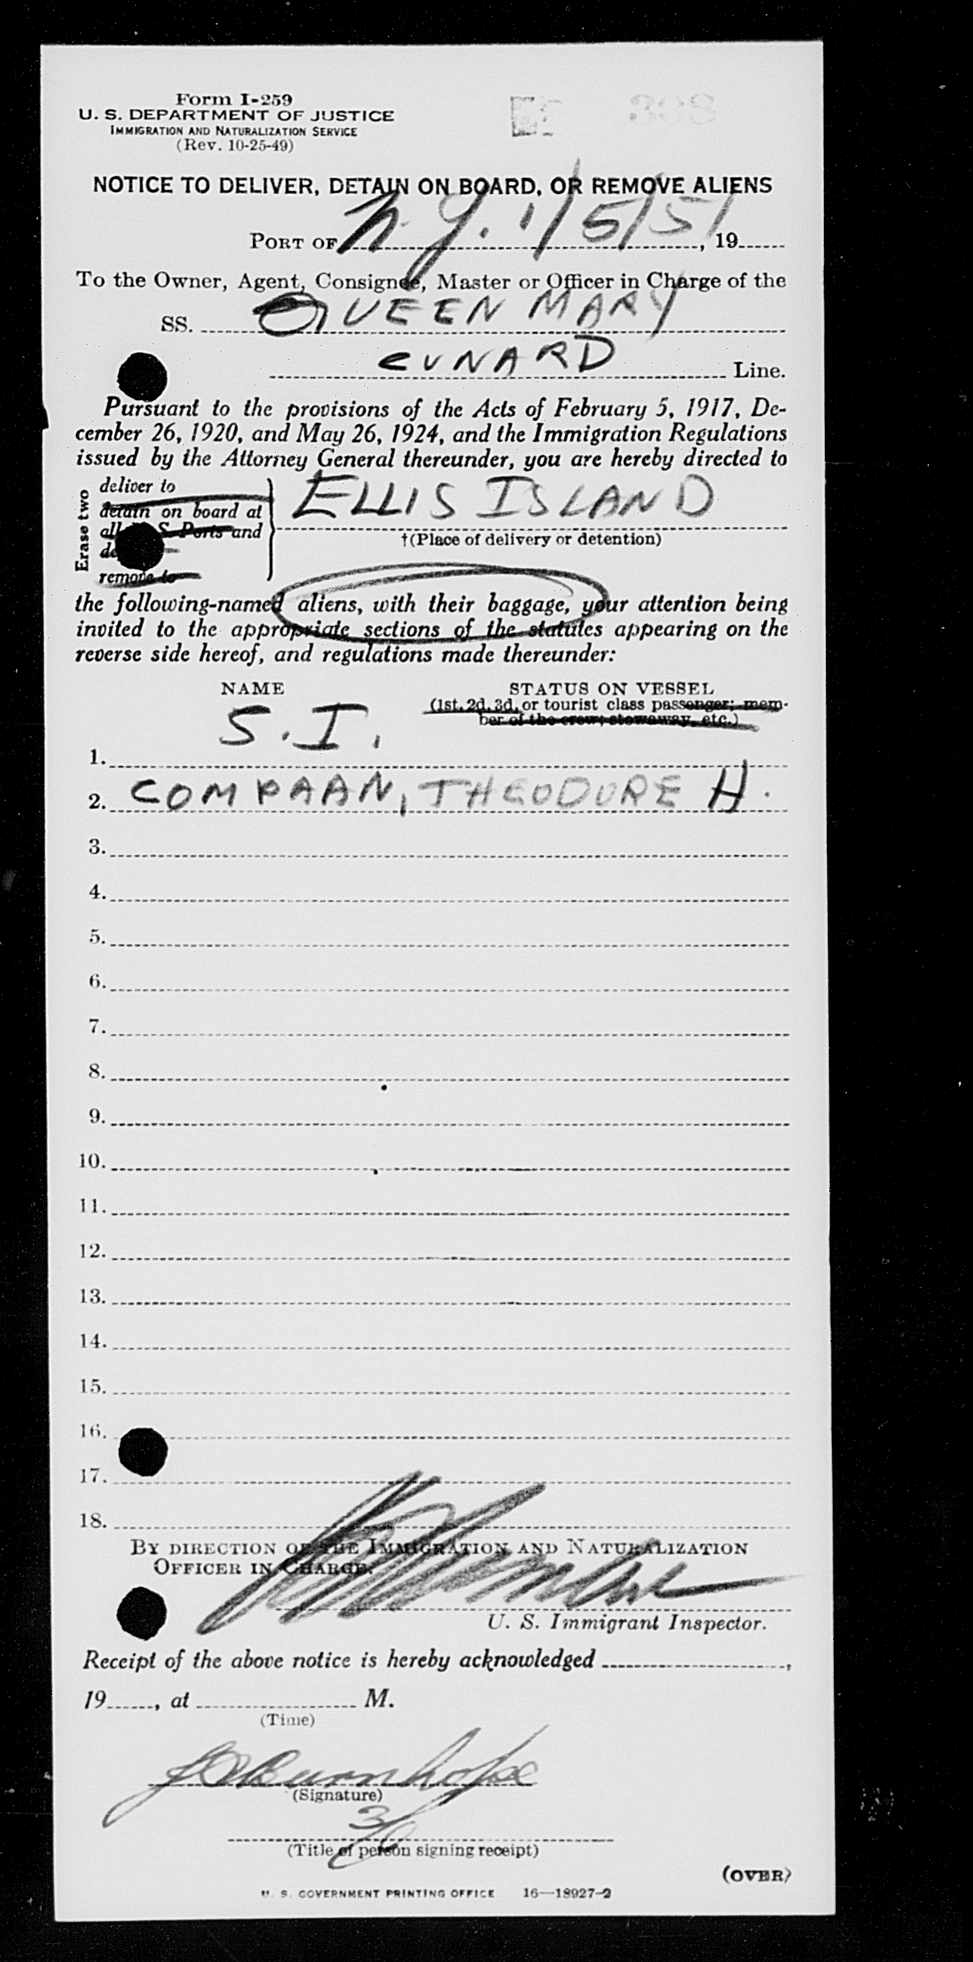 Form I-259
U. S. DEPARTMENT OF JUSTICE
IMMIGRATION AND NATURALIZATION SERVICE
(Rev. 10-25-49)
NOTICE TO DELIVER, DETAIN ON BOARD, OR REMOVE ALIENS
PORT OF N.Y. 1/5/51, 19
To the Owner, Agent, Consignee, Master or Officer in Charge of the
SS. QUEEN MARY
CUNARD Line.
Pursuant to the provisions of the Acts of February 5, 1917, De-
cember 26, 1920, and May 26, 1924, and the Immigration Regulations
issued by the Attorney General thereunder, you are hereby directed to
Erase two
deliver to
detain on board at
all U. S. Ports and
remove to
ELLIS ISLAND
†(Place of delivery or detention)
the following-named aliens, with their baggage, your attention being
invited to the appropriate sections of the statutes appearing on the
reverse side hereof, and regulations made thereunder:
NAME STATUS ON VESSEL
(1st, 2d, 3d, or tourist class passenger; mem-
ber of the crew; stowaway, etc.)
S.I.
1.
2. COMPAAN, THEODORE H.
3.
4.
5.
6.
7.
8.
9.
10.
11.
12.
13.
14.
15.
16.
17.
18.
BY DIRECTION OF THE IMMIGRATION AND NATURALIZATION
OFFICER IN CHARGE.
U. S. Immigrant Inspector.
Receipt of the above notice is hereby acknowledged ,
19 , at M.
(Time)
(Signature)
3/0
(Title of person signing receipt)
(OVER)
U. S. GOVERNMENT PRINTING OFFICE 16—18927-2